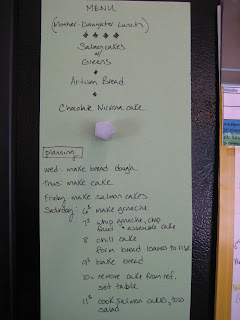 MENU
(Mother-Daughter Lunch)
Salmon cakes
w/
Greens
Artisan Bread
Chocolate Nirvana cake
planning
wed - make bread dough
Thurs make cake
Friday make salmon cakes
Saturday 6³ make ganache
7³ whip ganache, chop
fruit + assemble cake
8 chill cake
form bread loaves to rise
9³ bake bread
10 - remove cake from ref.
set table
11³ cook salmon cakes, toss
salad